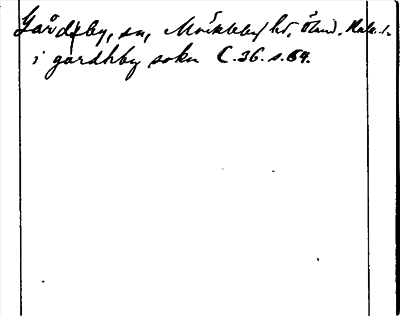 Gårdby, sn, Möckleby hd, Öland, Kalm. l.
i gardhby sokn C.36. s.64.